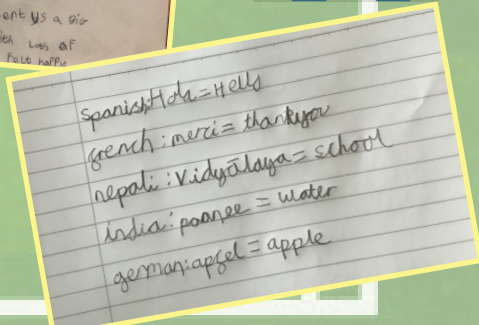 ent us a Big
ith Lots of
Spanish: Hola = Hello
french : merci = thankyou
nepali : Vidyālaya = school
india : paanee = water
german : apfel = apple